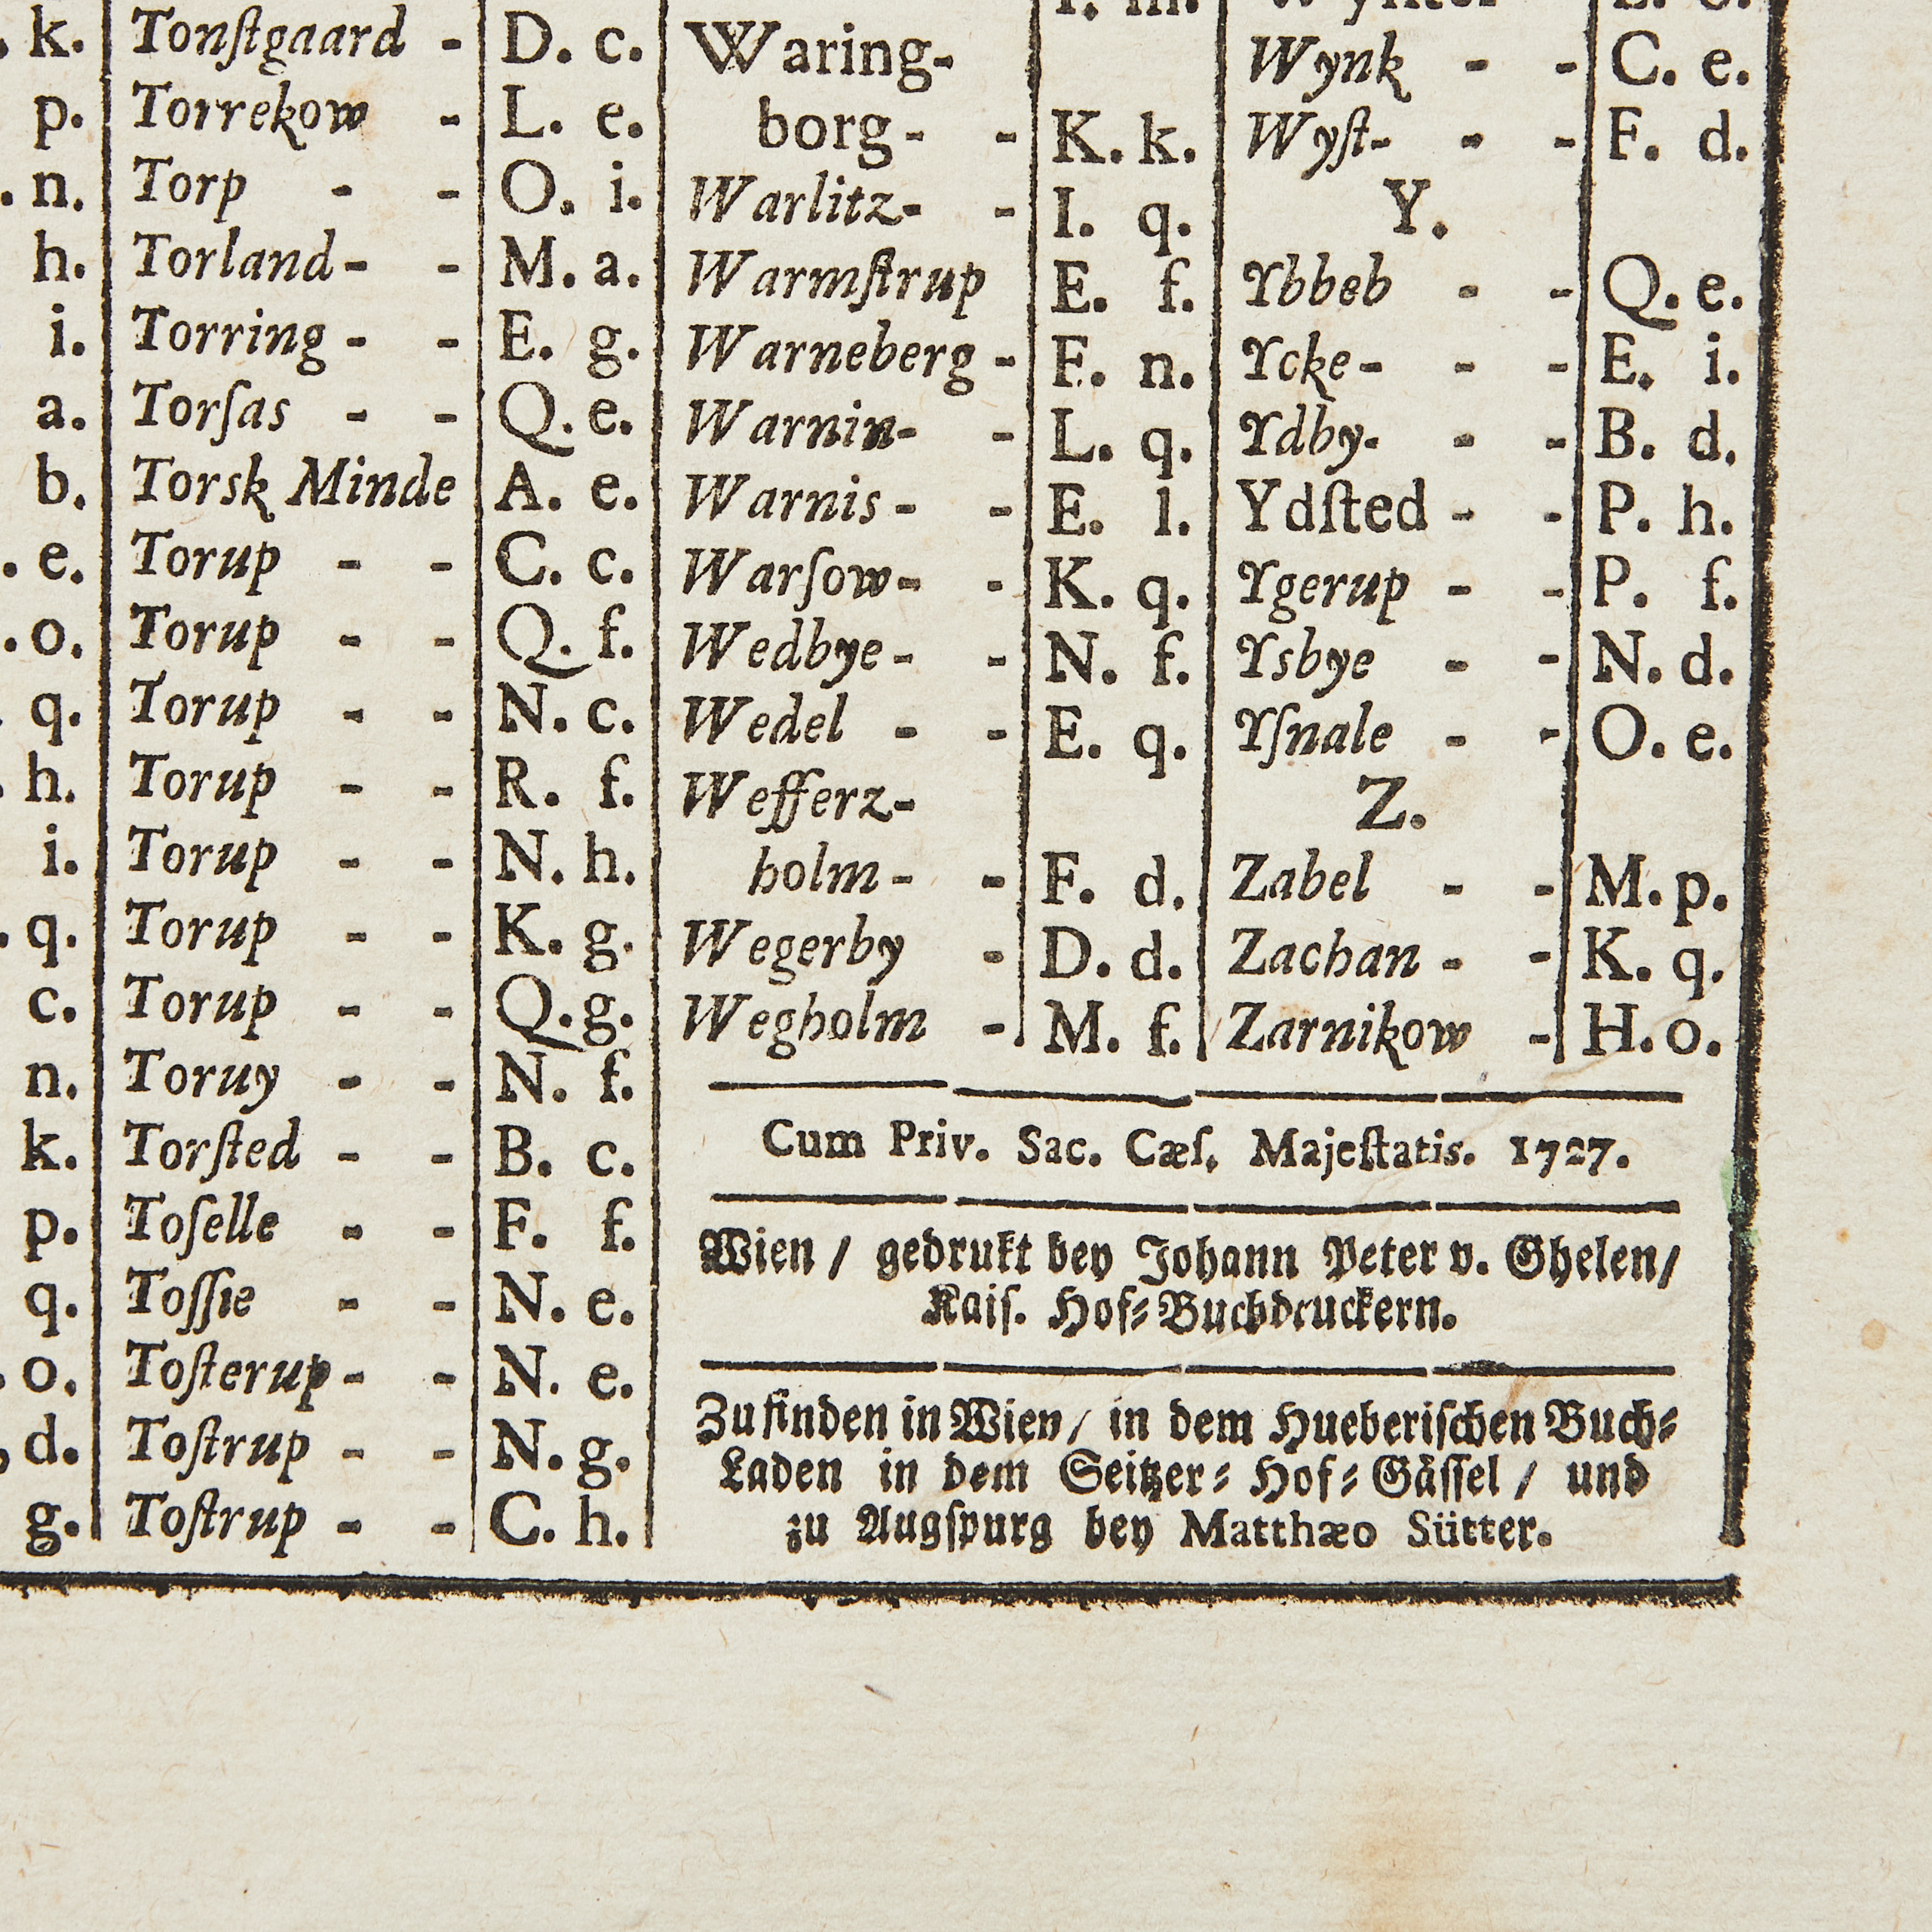 k.
p.
n.
h.
i.
a.
b.
e.
o.
q.
h.
i.
q.
c.
n.
k.
p.
q.
o.
d.
g.
Tonſtgaard - D. c.
Torrekow - L. e.
Torp - - O. i.
Torland - - M. a.
Torring - - E. g.
Torſas - - Q. e.
Torsk Minde A. e.
Torup - - C. c.
Torup - - Q. f.
Torup - - N. c.
Torup - - R. f.
Torup - - N. h.
Torup - - K. g.
Torup - - Q. g.
Toruy - - N. f.
Torſted - - B. c.
Toſelle - - F. f.
Toſſie - - N. e.
Toſterup - - N. e.
Toſtrup - - N. g.
Toſtrup - - C. h.
Waring-
borg - - K. k.
Warlitz - - I. q.
Warmſtrup E. f.
Warneberg - F. n.
Warnin - - L. q.
Warnis - - E. l.
Warſow - - K. q.
Wedbye - - N. f.
Wedel - - E. q.
Wefferz-
holm - - F. d.
Wegerby - D. d.
Wegholm - M. f.
Wynk - - C. e.
Wyſt - - - F. d.
Y.
Ybbeb - - Q. e.
Ycke - - - E. i.
Ydby - - - B. d.
Ydſted - - P. h.
Ygerup - - P. f.
Ysbye - - N. d.
Yſnale - - O. e.
Z.
Zabel - - M. p.
Zachan - - K. q.
Zarnikow - H. o.
Cum Priv. Sac. Cæſ. Majeſtatis. 1727.
Wien / gedrukt bey Johann Peter v. Ghelen/
Kaiſ. Hof⸗Buchdruckern.
Zu finden in Wien/ in dem Hueberiſchen Buch⸗
Laden in dem Seitzer⸗Hof⸗Gäſſel / und
zu Augſpurg bey Matthæo Sütter.